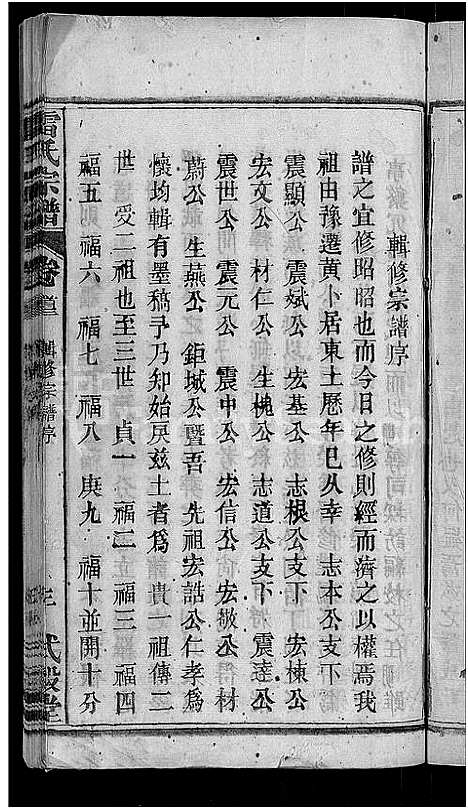 輯修宗譜序
譜之宜修昭昭也而今日之修則經而濟之以權焉我
祖由豫遷黃卜居東土歷年已久幸 志本公支下
震顯公 震斌公 宏基公 志根公支下 宏棟公
宏文公 材仁公 生槐公 志道公支下 震達公
震世公 震元公 震中公 宏信公 宏敬公
蔚公 生燕公 鉅城公暨吾 先祖宏誥公仁孝為
懷均輯有墨稿予乃知始戾茲土者為 貴一祖傳二
世 受二祖也至三世 貞一 福二 福三 福四
福五 福六 福七 福八 庚九 福十並開十分
雷氏宗譜
卷首
輯修宗譜序
三
式穀堂